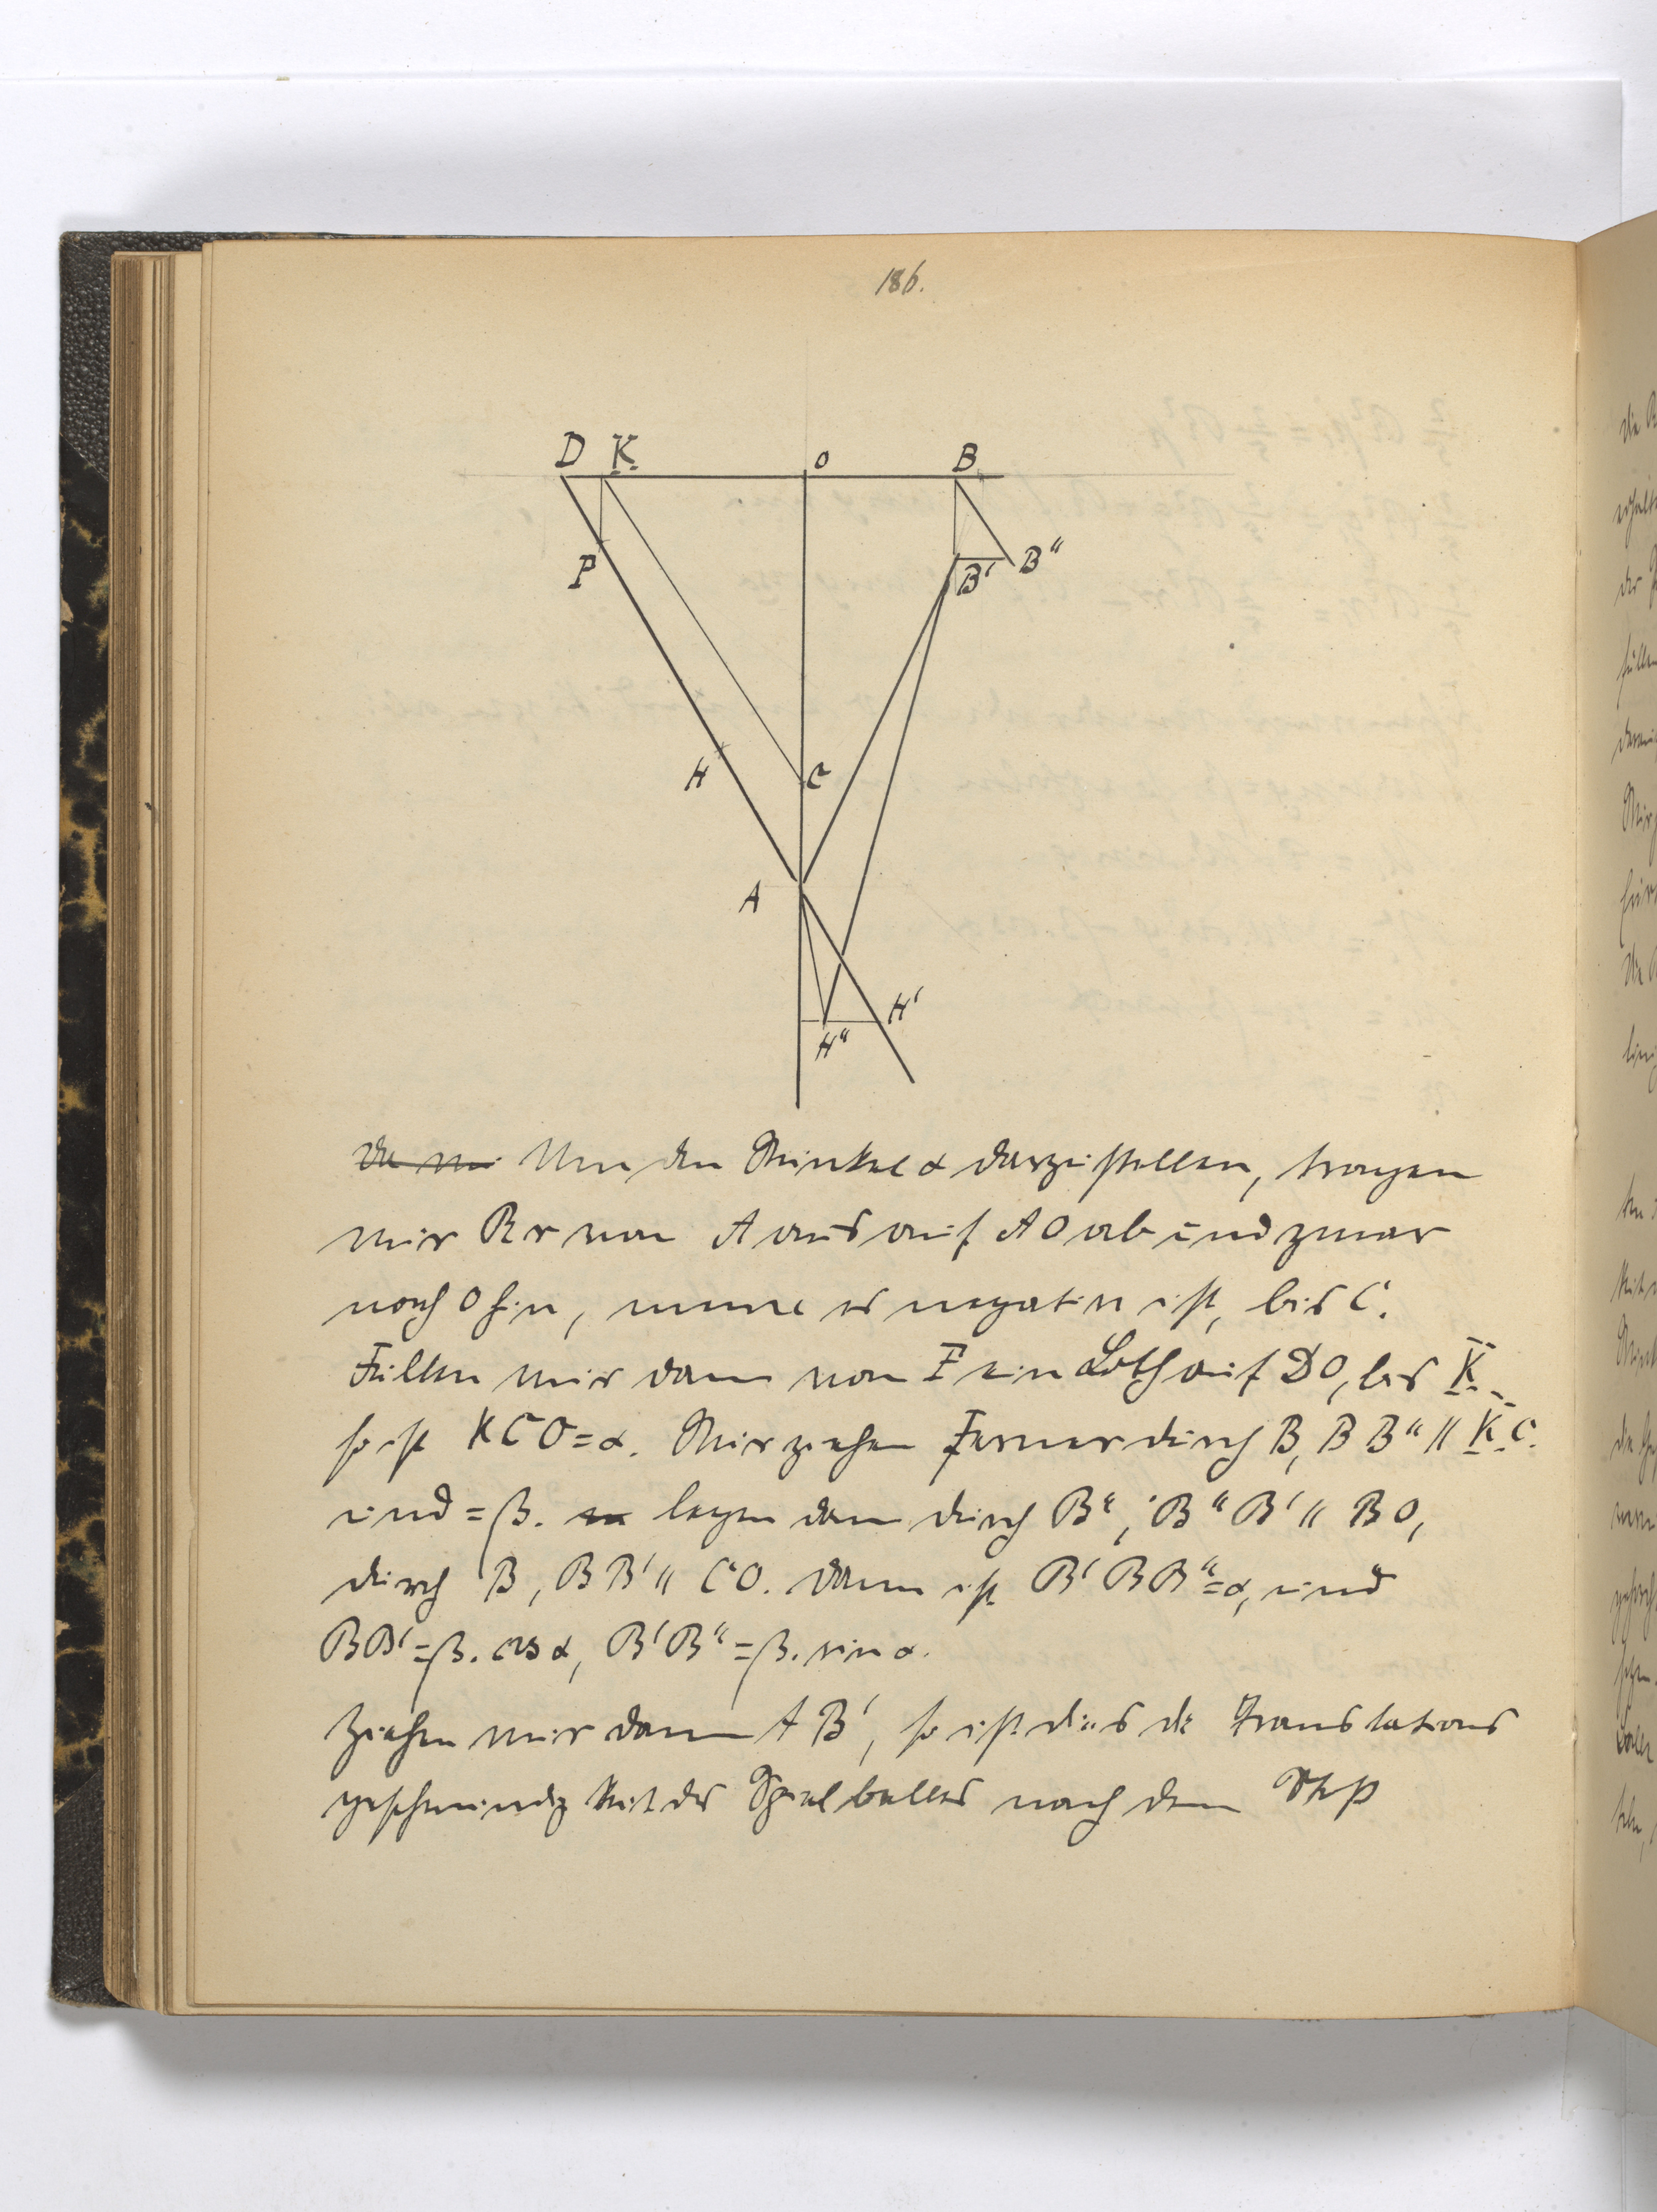 186.
D K O B
P B' B"
H C
A
H'
H"
Um den Winkel α darzustellen, tragen
wir Rr von A aus auf AO ab und zwar
nach O hin, wenn es negativ ist, bis C.
Fällen wir dann von P ein Loth auf DO, bis K.
so ist KCO = α. Wir ziehen ferner durch B, BB" || K.C.
und = β. legen dann durch B", B"B' || BO,
durch B, BB' || CO. Dann ist B'BB" = α, und
BB' = β. cos α, B'B" = β. sin α.
Ziehen wir dann AB', so ist dies die Translations
geschwindigkeit des Spielballes nach dem Stoß